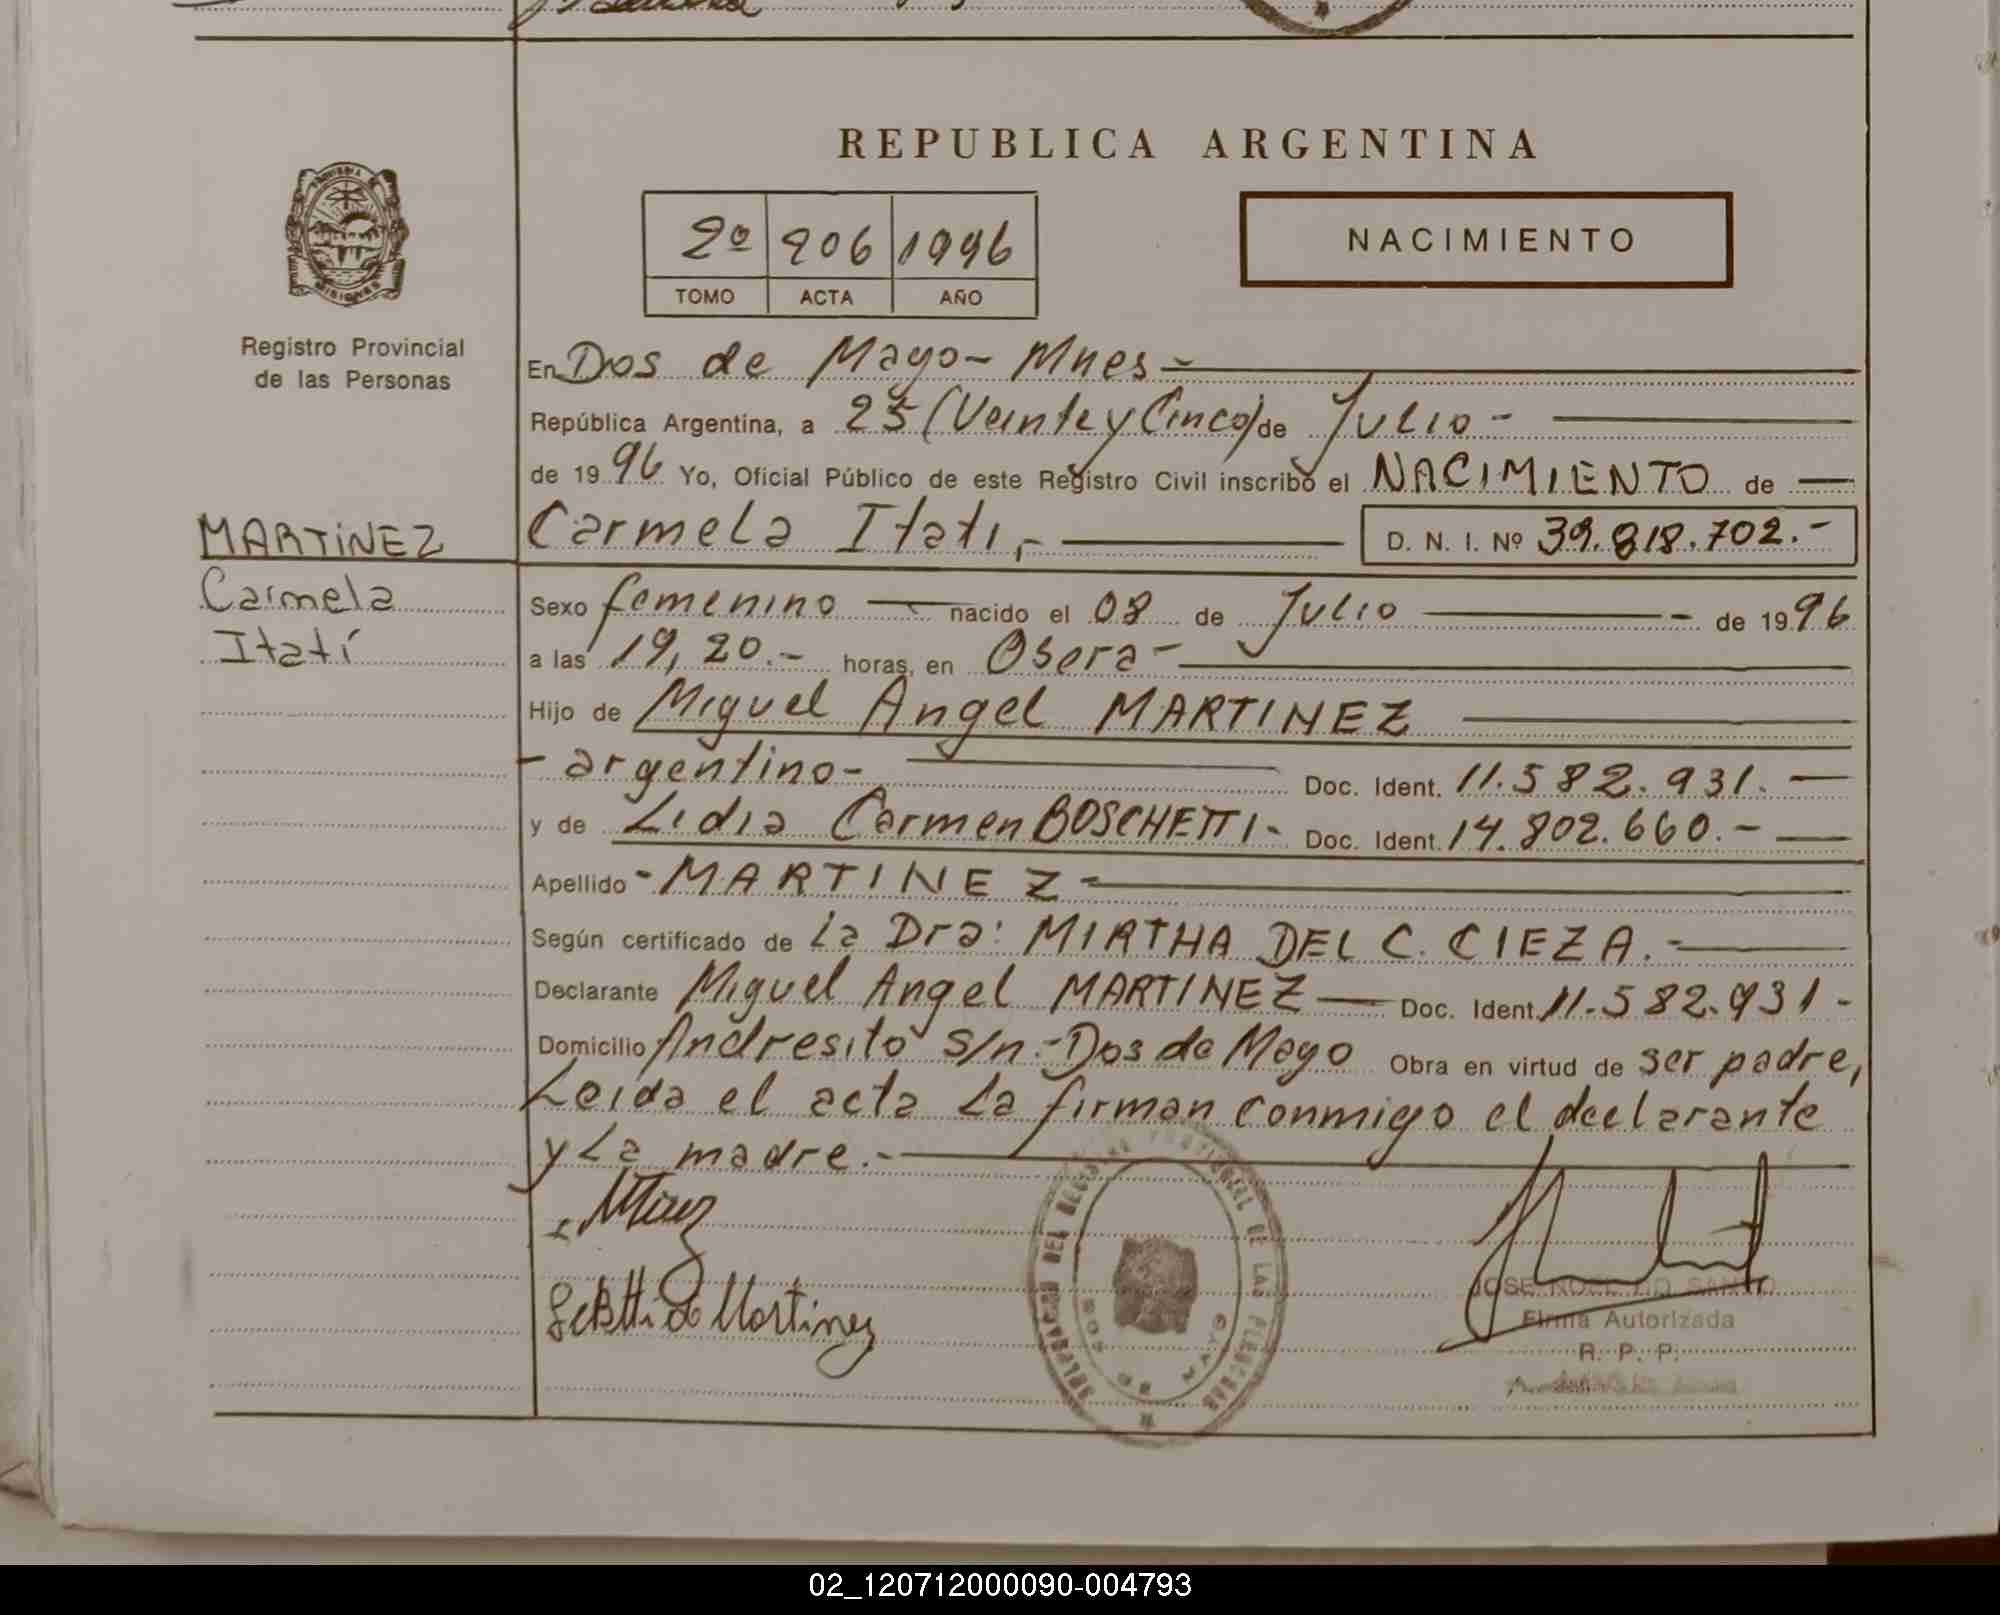 REPUBLICA ARGENTINA
2º 206 1996
TOMO ACTA AÑO
NACIMIENTO
MISIONES
Registro Provincial
de las Personas
En Dos de Mayo- Mnes-
República Argentina, a 25 (Veinte y Cinco) de Julio -
de 1996 Yo, Oficial Público de este Registro Civil inscribo el NACIMIENTO de
MARTINEZ
Carmela Itatí
Carmela Itati,- D. N. I. Nº 39.818.702.-
Sexo femenino nacido el 08 de Julio - de 1996
a las 19,20.- horas, en Osera-
Hijo de Miguel Angel MARTINEZ
- argentino- Doc. Ident. 11.582.931.-
y de Lidia Carmen BOSCHETTI- Doc. Ident. 14.802.660.-
Apellido - MARTINEZ-
Según certificado de La Dra: MIRTHA DEL C. CIEZA.-
Declarante Miguel Angel MARTINEZ- Doc. Ident. 11.582.931-
Domicilio Andresito s/n.- Dos de Mayo Obra en virtud de ser padre,
Leida el acta La firman conmigo el declarante
y La madre.-
de Martinez
DOS DE MAYO
Firma Autorizada
R. P. P.
02_120712000090-004793